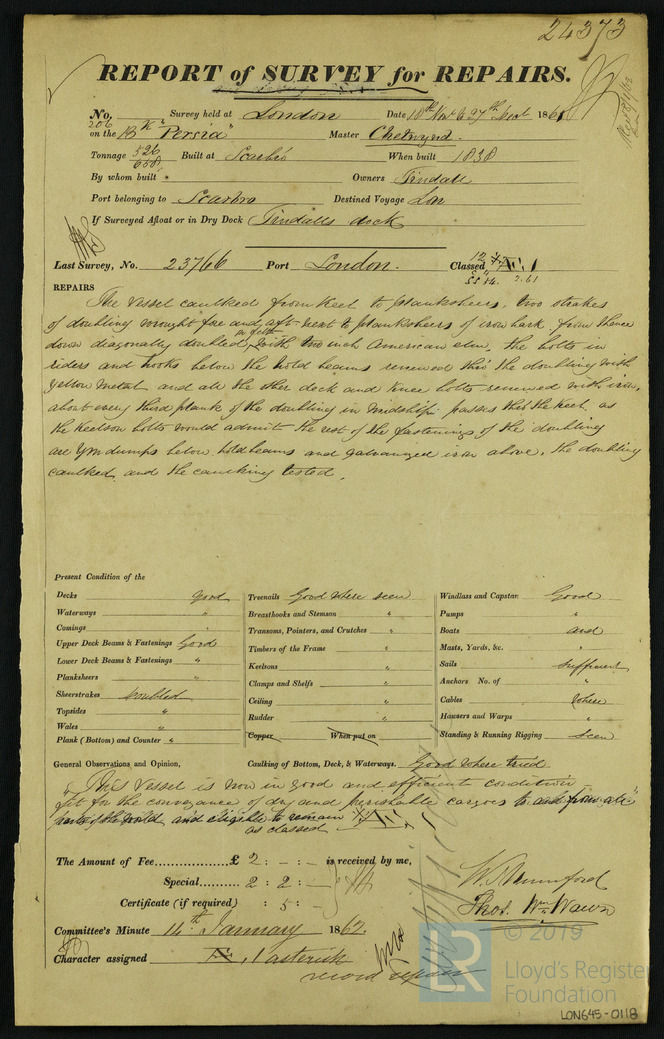 24373
REPORT of SURVEY for REPAIRS.
No. 206 Survey held at London Date 18th Nov to 27th 1861
on the Bk "Persia" Master Chetwynd
Tonnage 526 658 Built at Scarbro When built 1838
By whom built " Owners Tindall
Port belonging to Scarbro Destined Voyage Lon
If Surveyed Afloat or in Dry Dock Tindalls dock
Last Survey, No. 23766 Port London. Classed 12 Æ 1
55 2.61
REPAIRS
The Vessel caulked from Keel to planksheers, two strakes
of doubling wrought fore and aft next to planksheers of iron bark, from thence
down diagonally doubled, in felt with two inch American elm, the bolts in
riders and hooks below the hold beams renewed thro the doubling with
yellow metal and all the other deck and knee bolts renewed with iron,
about every third plank of the doubling in midships passes thro the keel as
the keelson bolts would admit the rest of the fastenings of the doubling
are Ym dumps below hold beams and galvanized iron above, the doubling
caulked, and the caulking tested.
Present Condition of the
Decks good
Waterways "
Comings "
Upper Deck Beams & Fastenings Good
Lower Deck Beams & Fastenings "
Planksheers "
Sheerstrakes doubled
Topsides "
Wales "
Plank (Bottom) and Counter "
Treenails Good where seen
Breasthooks and Stemson "
Transoms, Pointers, and Crutches "
Timbers of the Frame "
Keelsons "
Clamps and Shelfs "
Ceiling "
Rudder "
Copper When put on
Windlass and Capstan Good
Pumps "
Boats and
Masts, Yards, &c. "
Sails sufficient
Anchors No. of "
Cables where
Hawsers and Warps "
Standing & Running Rigging seen
General Observations and Opinion, Caulking of Bottom, Deck, & Waterways. Good where tried
"This Vessel is now in good and efficient condition
fit for the conveyance of dry and perishable cargoes to and from all"
parts of the world and eligible to remain
as classed Æ 1
The Amount of Fee.... £ 2 : - : - is received by me,
Special.......... 2 : 2 : -
Certificate (if required) : 5 : -
W. Mumford
Thos. Wm. Wawn
Committee's Minute 14th January 1862.
Character assigned Æ, 1 asterisk
record repairs
© 2019
LR
Lloyd's Register
Foundation
LON645-0118